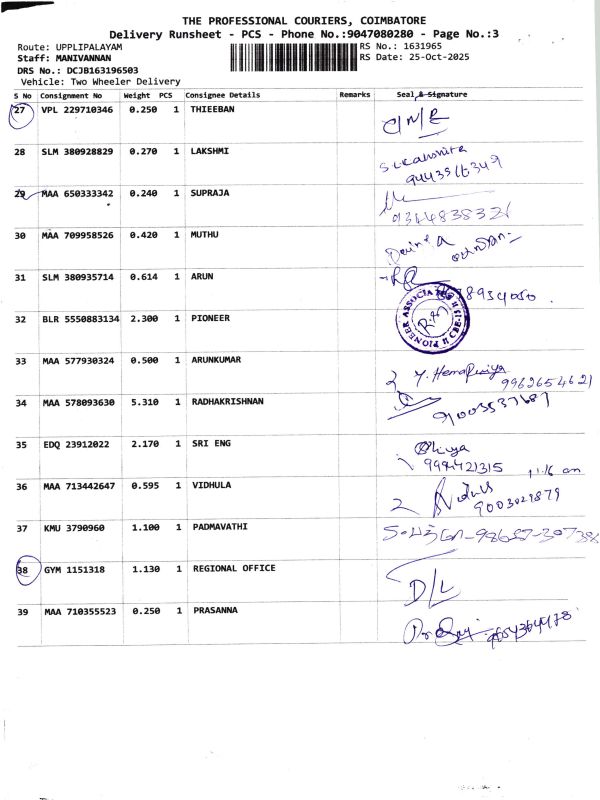 THE PROFESSIONAL COURIERS, COIMBATORE
Delivery Runsheet - PCS - Phone No.:9047080280 - Page No.:3
Route: UPPLIPALAYAM RS No.: 1631965
Staff: MANIVANNAN RS Date: 25-Oct-2025
DRS No.: DCJB163196503
Vehicle: Two Wheeler Delivery
S No Consignment No Weight PCS Consignee Details Remarks Seal & Signature
27 VPL 229710346 0.250 1 THIEEBAN
28 SLM 380928829 0.270 1 LAKSHMI
29 MAA 650333342 0.240 1 SUPRAJA
30 MAA 709958526 0.420 1 MUTHU
31 SLM 380935714 0.614 1 ARUN
32 BLR 5550883134 2.300 1 PIONEER
PIONEER ASSOCIATES
33 MAA 577930324 0.500 1 ARUNKUMAR
Y. HemaPriya 9962654621
34 MAA 578093630 5.310 1 RADHAKRISHNAN
35 EDQ 23912022 2.170 1 SRI ENG
11.16 am
36 MAA 713442647 0.595 1 VIDHULA
9003029879
37 KMU 3790960 1.100 1 PADMAVATHI
38 GYM 1151318 1.130 1 REGIONAL OFFICE
D/L
39 MAA 710355523 0.250 1 PRASANNA